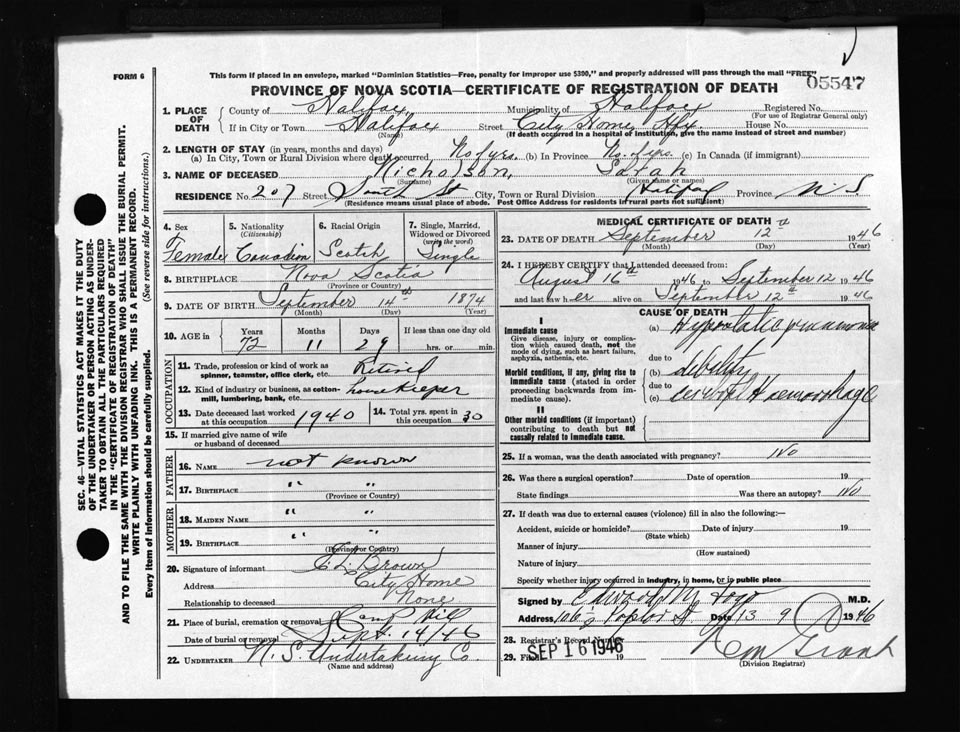 FORM 6
This form if placed in an envelope, marked "Dominion Statistics—Free, penalty for improper use $300," and properly addressed will pass through the mail "FREE"
05547
PROVINCE OF NOVA SCOTIA—CERTIFICATE OF REGISTRATION OF DEATH
1. PLACE OF DEATH County of Halifax Municipality of Halifax Registered No.
(For use of Registrar General only)
If in City or Town Halifax Street City Home, Hfx. House No.
(Name) (If death occurred in a hospital of institution, give the name instead of street and number)
2. LENGTH OF STAY (in years, months and days)
(a) In City, Town or Rural Division where death occurred No. of yrs. (b) In Province No. of yrs. (c) In Canada (if immigrant)
3. NAME OF DECEASED Nicholson, Sarah
(Surname) (Given name or names)
RESIDENCE No. 207 Street South St City, Town or Rural Division Halifax Province N. S
(Residence means usual place of abode. Post Office Address for residents in rural parts not sufficient)
4. Sex
Female
5. Nationality
(Citizenship)
Canadian
6. Racial Origin
Scotch
7. Single, Married, Widowed or Divorced
(write the word)
Single
8. BIRTHPLACE Nova Scotia
(Province or Country)
9. DATE OF BIRTH September 14th 1874
(Month) (Day) (Year)
10. AGE in Years Months Days If less than one day old
72 11 29 hrs. or min.
OCCUPATION
11. Trade, profession or kind of work as spinner, teamster, office clerk, etc. Retired
12. Kind of industry or business, as cotton-mill, lumbering, bank, etc. housekeeper
13. Date deceased last worked at this occupation 1940
14. Total yrs. spent in this occupation 30
15. If married give name of wife or husband of deceased
FATHER
16. NAME not known
17. BIRTHPLACE " "
(Province or Country)
MOTHER
18. MAIDEN NAME " "
19. BIRTHPLACE " "
(Province or Country)
20. Signature of informant E. L. Brown
Address City Home
Relationship to deceased None
21. Place of burial, cremation or removal Camp Hill
Date of burial or removal Sept. 14/46
22. UNDERTAKER N. S. Undertaking Co.
(Name and address)
MEDICAL CERTIFICATE OF DEATH
23. DATE OF DEATH September 12th 1946
(Month) (Day) (Year)
24. I HEREBY CERTIFY that I attended deceased from:
August 16th 1946 to September 12 1946
and last saw her alive on September 12th 1946
CAUSE OF DEATH
I
Immediate cause
Give disease, injury or complication which caused death, not the mode of dying, such as heart failure, asphyxia, asthenia, etc.
(a) Hypostatic pneumonia
due to
Morbid conditions, if any, giving rise to immediate cause (stated in order proceeding backwards from immediate cause).
(b) debility
due to
(c) cerebral Haemorrhage
II
Other morbid conditions (if important) contributing to death but not causally related to immediate cause.
25. If a woman, was the death associated with pregnancy? No
26. Was there a surgical operation? Date of operation 19
State findings Was there an autopsy? No
27. If death was due to external causes (violence) fill in also the following:—
Accident, suicide or homicide? Date of injury 19
(State which)
Manner of injury
(How sustained)
Nature of injury
Specify whether injury occurred in industry, in home, or in public place
Signed by M.D.
Address St. Date 13 9 1946
28. Registrar's Record Number
29. Filed SEP 16 1946 19
(Division Registrar)
SEC. 46—VITAL STATISTICS ACT MAKES IT THE DUTY
OF THE UNDERTAKER OR PERSON ACTING AS UNDERTAKER TO OBTAIN ALL THE PARTICULARS REQUIRED
IN THE "CERTIFICATE OF REGISTRATION OF DEATH"
AND TO FILE THE SAME WITH THE DIVISION REGISTRAR WHO SHALL ISSUE THE BURIAL PERMIT.
WRITE PLAINLY WITH UNFADING INK. THIS IS A PERMANENT RECORD.
Every item of information should be carefully supplied. (See reverse side for instructions.)